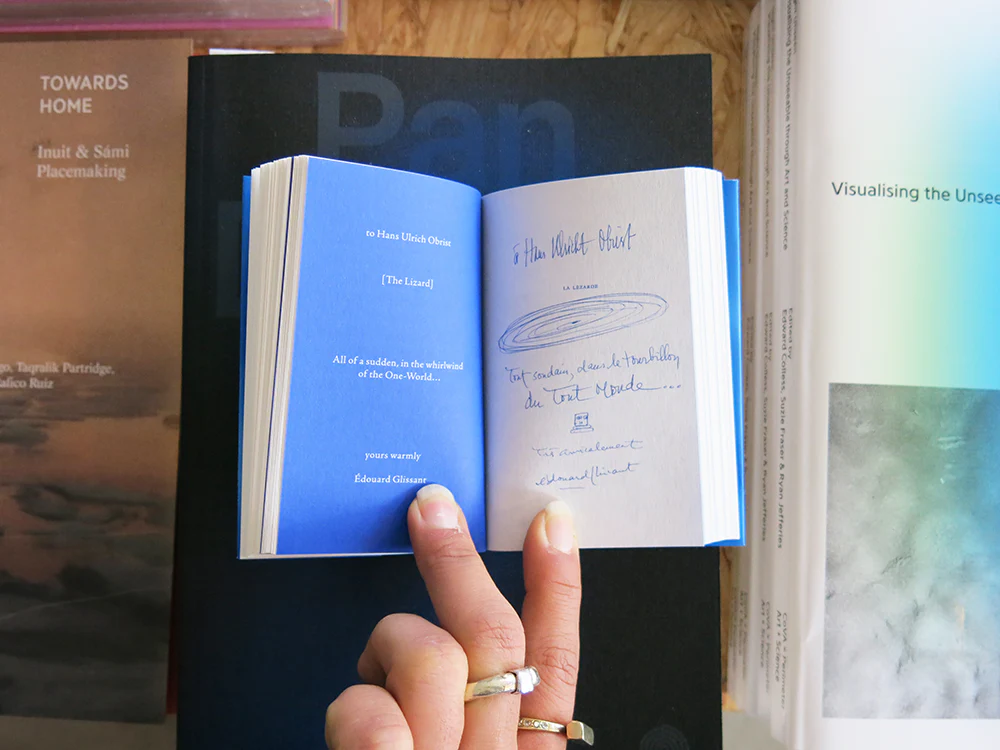 TOWARDS
HOME
Inuit & Sámi
Placemaking
Taqralik Partridge,
Ruiz
Pan
to Hans Ulrich Obrist
[The Lizard]
All of a sudden, in the whirlwind
of the One-World...
yours warmly
Édouard Glissant
à Hans Ulricht Obrist
LA LÉZARDE
Tout soudain, dans le tourbillon
du Tout Monde...
Très amicalement
edouard glissant
Visualising the Unseeable through Art and Science
Edited by
Edward Colless, Suzie Fraser & Ryan Jefferies
Art + Science
Visualising the